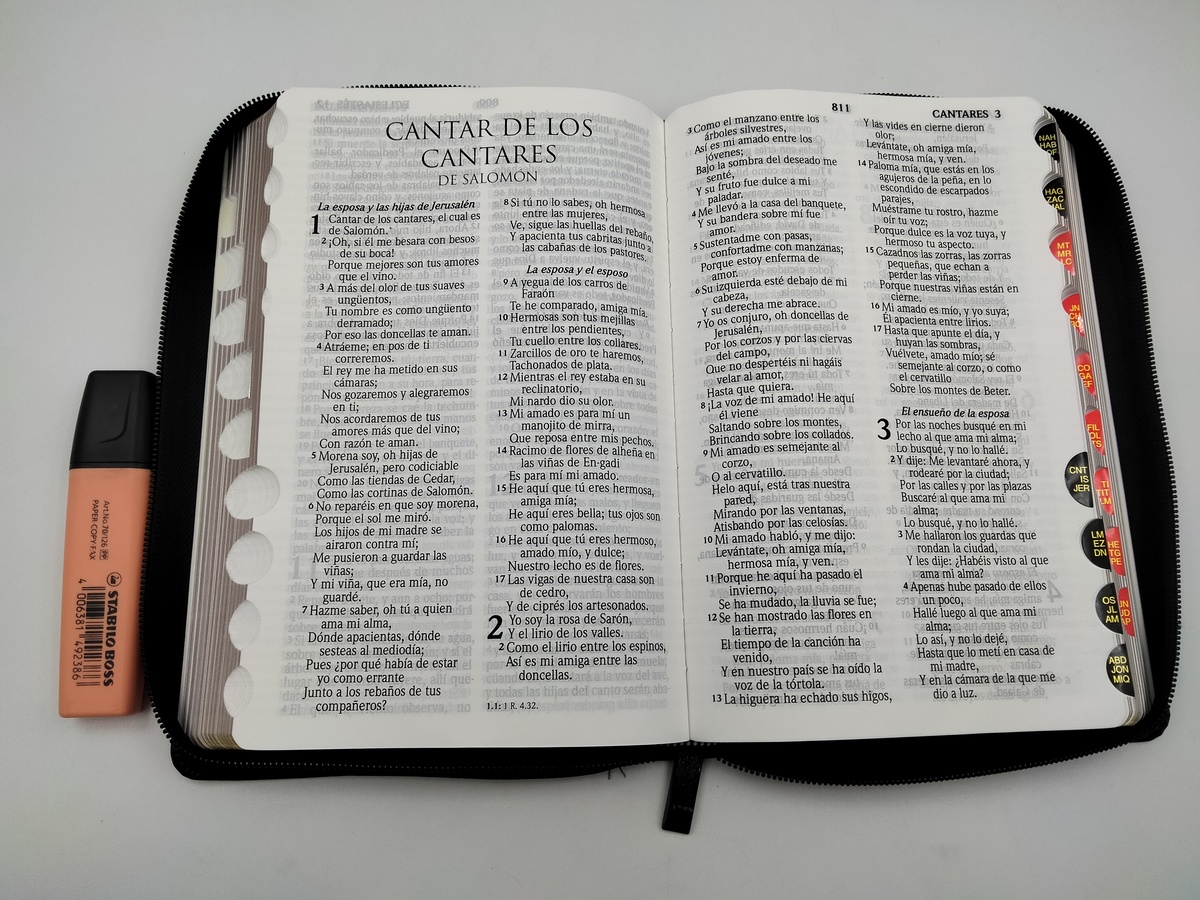 CANTAR DE LOS
CANTARES
DE SALOMÓN
La esposa y las hijas de Jerusalén
1 Cantar de los cantares, el cual es
de Salomón.*
2 ¡Oh, si él me besara con besos
de su boca!
Porque mejores son tus amores
que el vino.
3 A más del olor de tus suaves
ungüentos,
Tu nombre es como ungüento
derramado;
Por eso las doncellas te aman.
4 Atráeme; en pos de ti
correremos.
El rey me ha metido en sus
cámaras;
Nos gozaremos y alegraremos
en ti;
Nos acordaremos de tus
amores más que del vino;
Con razón te aman.
5 Morena soy, oh hijas de
Jerusalén, pero codiciable
Como las tiendas de Cedar,
Como las cortinas de Salomón.
6 No reparéis en que soy morena,
Porque el sol me miró.
Los hijos de mi madre se
airaron contra mí;
Me pusieron a guardar las
viñas;
Y mi viña, que era mía, no
guardé.
7 Hazme saber, oh tú a quien
ama mi alma,
Dónde apacientas, dónde
sesteas al mediodía;
Pues ¿por qué había de estar
yo como errante
Junto a los rebaños de tus
compañeros?
8 Si tú no lo sabes, oh hermosa
entre las mujeres,
Ve, sigue las huellas del rebaño,
Y apacienta tus cabritas junto a
las cabañas de los pastores.
La esposa y el esposo
9 A yegua de los carros de
Faraón
Te he comparado, amiga mía.
10 Hermosas son tus mejillas
entre los pendientes,
Tu cuello entre los collares.
11 Zarcillos de oro te haremos,
Tachonados de plata.
12 Mientras el rey estaba en su
reclinatorio,
Mi nardo dio su olor.
13 Mi amado es para mí un
manojito de mirra,
Que reposa entre mis pechos.
14 Racimo de flores de alheña en
las viñas de En-gadi
Es para mí mi amado.
15 He aquí que tú eres hermosa,
amiga mía;
He aquí eres bella; tus ojos son
como palomas.
16 He aquí que tú eres hermoso,
amado mío, y dulce;
Nuestro lecho es de flores.
17 Las vigas de nuestra casa son
de cedro,
Y de ciprés los artesonados.
2 Yo soy la rosa de Sarón,
Y el lirio de los valles.
2 Como el lirio entre los espinos,
Así es mi amiga entre las
doncellas.
1.1: 1 R. 4.32.
811
CANTARES 3
3 Como el manzano entre los
árboles silvestres,
Así es mi amado entre los
jóvenes;
Bajo la sombra del deseado me
senté,
Y su fruto fue dulce a mi
paladar.
4 Me llevó a la casa del banquete,
Y su bandera sobre mí fue
amor.
5 Sustentadme con pasas,
confortadme con manzanas;
Porque estoy enferma de
amor.
6 Su izquierda esté debajo de mi
cabeza,
Y su derecha me abrace.
7 Yo os conjuro, oh doncellas de
Jerusalén,
Por los corzos y por las ciervas
del campo,
Que no despertéis ni hagáis
velar al amor,
Hasta que quiera.
8 ¡La voz de mi amado! He aquí
él viene
Saltando sobre los montes,
Brincando sobre los collados.
9 Mi amado es semejante al
corzo,
O al cervatillo.
Helo aquí, está tras nuestra
pared,
Mirando por las ventanas,
Atisbando por las celosías.
10 Mi amado habló, y me dijo:
Levántate, oh amiga mía,
hermosa mía, y ven.
11 Porque he aquí ha pasado el
invierno,
Se ha mudado, la lluvia se fue;
12 Se han mostrado las flores en
la tierra,
El tiempo de la canción ha
venido,
Y en nuestro país se ha oído la
voz de la tórtola.
13 La higuera ha echado sus higos,
Y las vides en cierne dieron
olor;
Levántate, oh amiga mía,
hermosa mía, y ven.
14 Paloma mía, que estás en los
agujeros de la peña, en lo
escondido de escarpados
parajes,
Muéstrame tu rostro, hazme
oír tu voz;
Porque dulce es la voz tuya, y
hermoso tu aspecto.
15 Cazadnos las zorras, las zorras
pequeñas, que echan a
perder las viñas;
Porque nuestras viñas están en
cierne.
16 Mi amado es mío, y yo suya;
Él apacienta entre lirios.
17 Hasta que apunte el día, y
huyan las sombras,
Vuélvete, amado mío; sé
semejante al corzo, o como
el cervatillo
Sobre los montes de Beter.
El ensueño de la esposa
3 Por las noches busqué en mi
lecho al que ama mi alma;
Lo busqué, y no lo hallé.
2 Y dije: Me levantaré ahora, y
rodearé por la ciudad;
Por las calles y por las plazas
Buscaré al que ama mi
alma;
Lo busqué, y no lo hallé.
3 Me hallaron los guardas que
rondan la ciudad,
Y les dije: ¿Habéis visto al que
ama mi alma?
4 Apenas hube pasado de ellos
un poco,
Hallé luego al que ama mi
alma;
Lo así, y no lo dejé,
Hasta que lo metí en casa de
mi madre,
Y en la cámara de la que me
dio a luz.
NAH
HAB
HAG
ZAC
MT
MR
LC
JN
CO
GA
EF
FIL
CNT
IS
JER
TI
TIT
LM
EZ
DN
HE
PE
OS
JL
AM
JN
JD
AP
ABD
JON
MIQ
STABILO BOSS
Art.No. 70/126
4 006381 492386